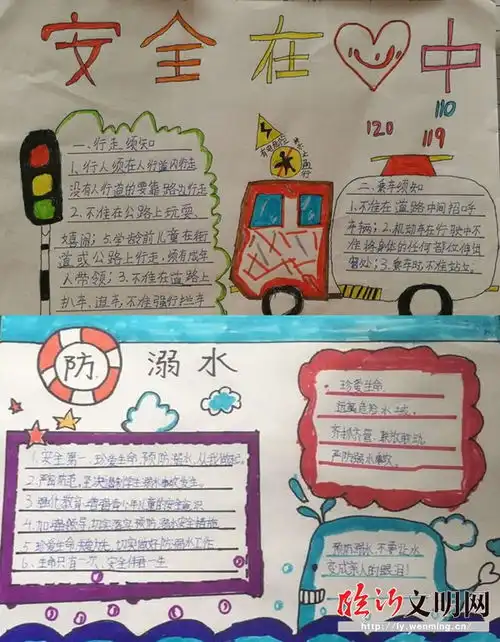 安全在中
110
120
119
一、行走须知
1、行人须在人行道内行走
没有人行道的要靠路边行走
2、不准在公路上玩耍、
嬉闹；5、学龄前儿童在街
道或公路上行走，须有成年
人带领；3、不准在道路上
扒车、追车、不准强行拦车
二、乘车须知
1、不准在道路中间招呼
车辆；2、机动车在行驶中不
准将身体的任何部位伸出
窗外；3、乘车时，不准站立。
防溺水
1、安全第一，珍爱生命，预防溺水，从我做起。
2、严密防范，坚决遏制学生溺水事故发生。
3、强化教育，增强青少年儿童的安全意识
4、加强领导，切实落实预防溺水安全措施
5、珍爱生命 切实做好防溺水工作
6、生命只有一次，安全伴君一生
珍爱生命、
远离危险水域。
齐抓共管，联防联动，
严防溺水事故。
预防溺水，不要让水
变成亲人的眼泪！
临沂文明网
http://ly.wenming.cn/